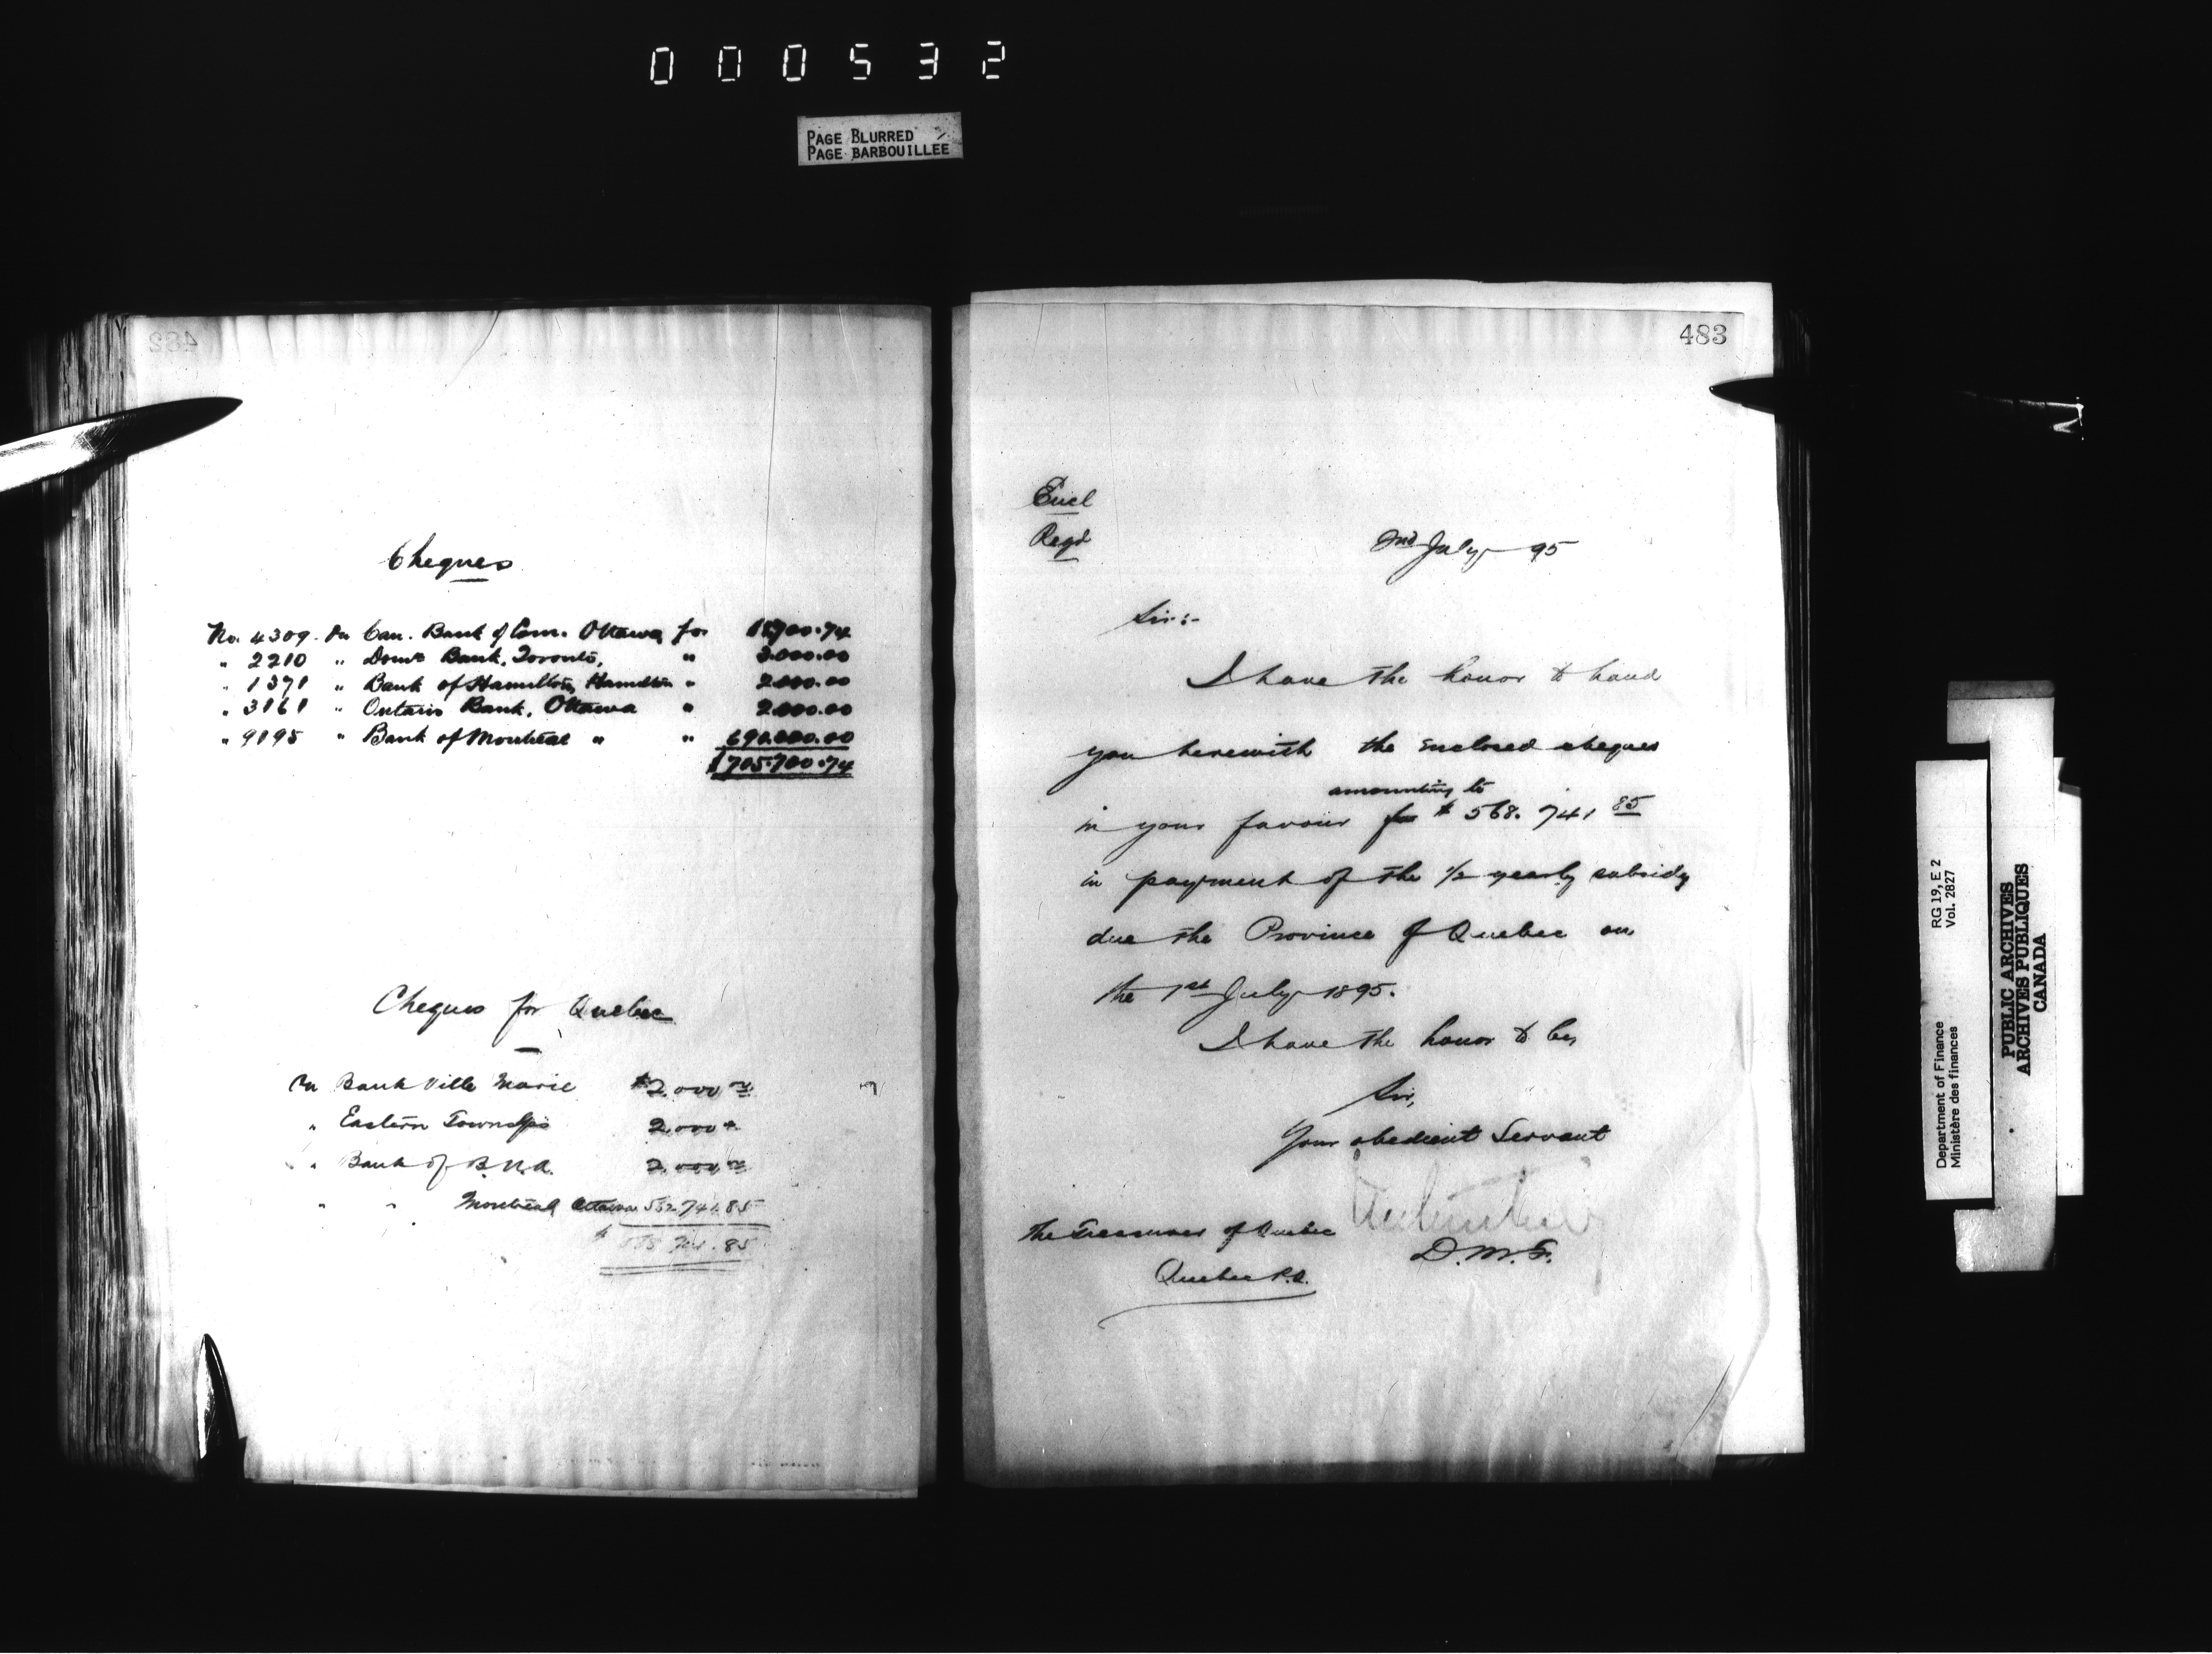 000532
PAGE BLURRED
PAGE BARBOUILLEE
482
Cheques
No. 4309 On Can. Bank of Com. Ottawa for 11,700.74
" 2210 " Domn Bank, Toronto, "
" 1371 " Bank of Hamilton, Hamilton " 2.000.00
" 3161 " Ontario Bank, Ottawa " 2.000.00
" 9195 " Bank of Montreal " " 690.000.00
$705.700.74
Cheques for Quebec
On Bank Ville Marie $2.000 00
" Eastern Townships 2.000 "
" Bank of B.N.A. 2.000 00
" " Montreal Ottawa 562.741.85
$ 568 741.85
483
Encl
Regd
2nd July 95
Sir:-
I have the honor to hand
you herewith the enclosed cheques
amounting to
in your favour for $ 568.741 85
in payment of the 1/2 yearly subsidy
due the Province of Quebec on
the 1st July 1895.
I have the honor to be,
Sir,
Your obedient Servant
D.M.F.
The Treasurer of Quebec
Quebec P.Q.
RG 19, E 2
Vol. 2827
Department of Finance
Ministère des finances
PUBLIC ARCHIVES
ARCHIVES PUBLIQUES
CANADA